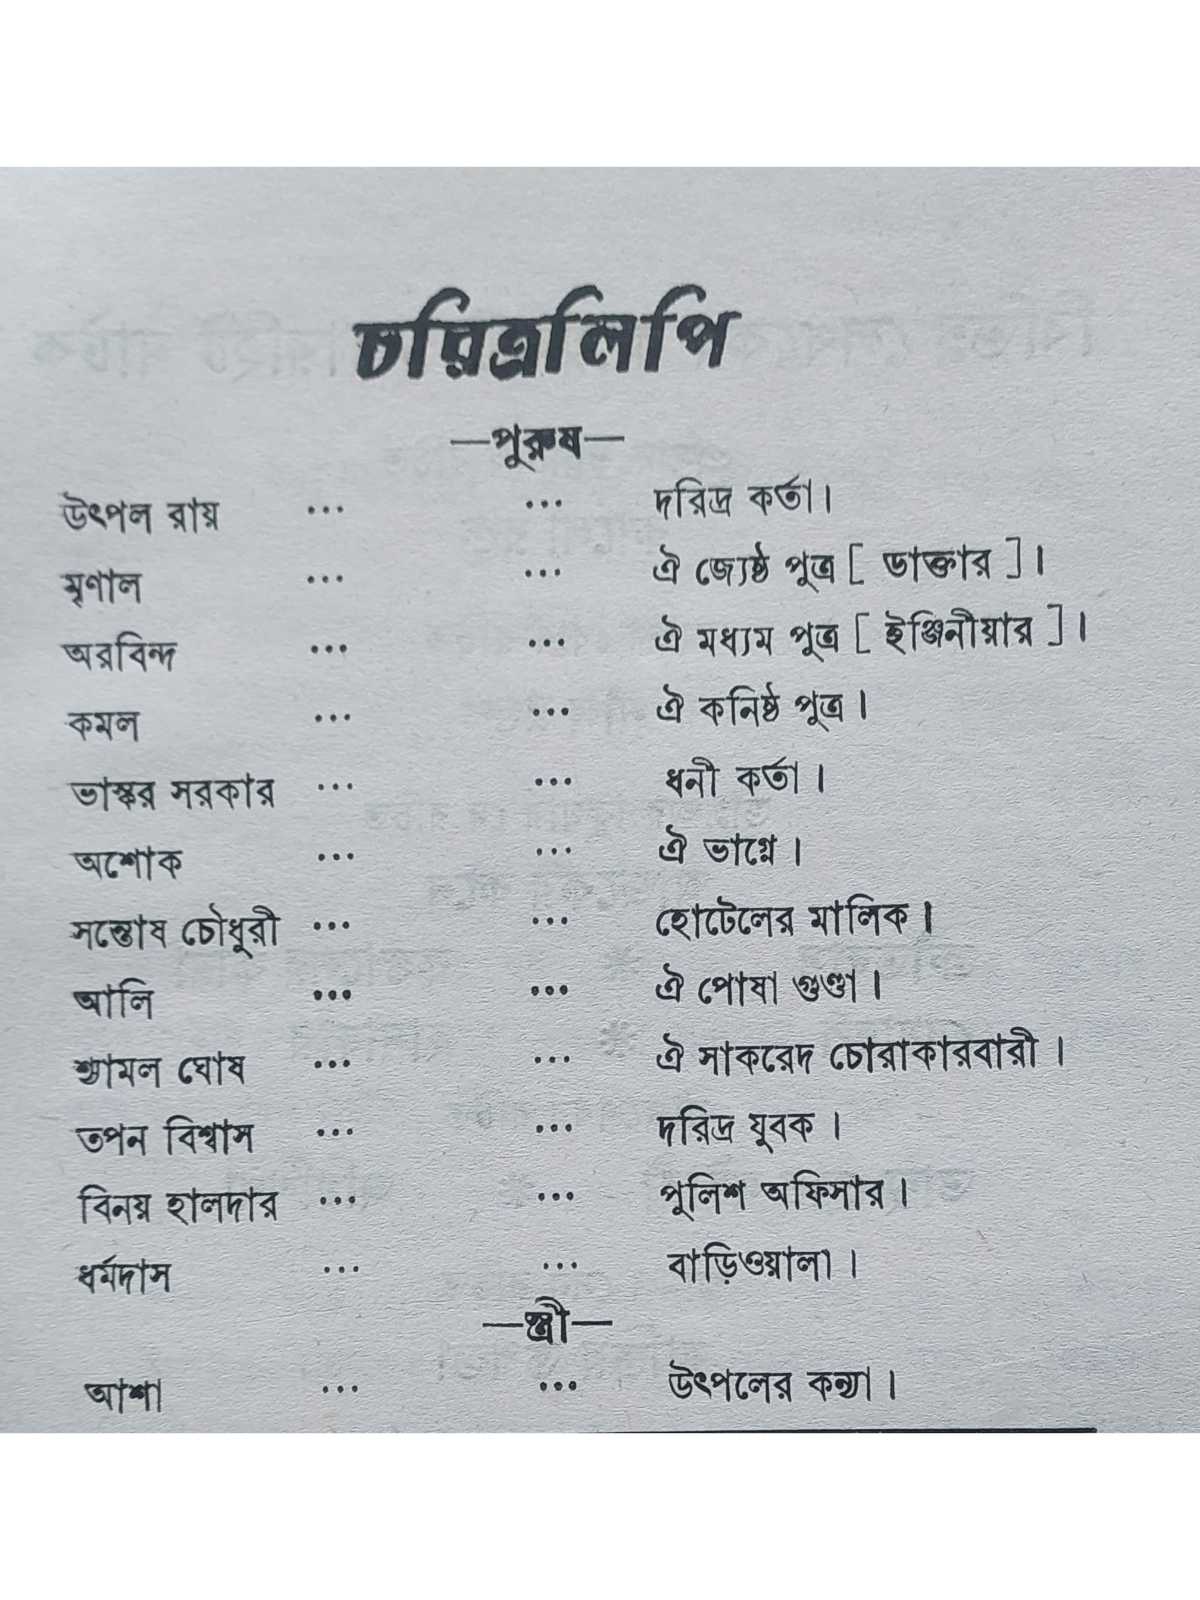 চরিত্রলিপি
—পুরুষ—
উৎপল রায় ... ... দরিদ্র কর্তা।
মৃণাল ... ... ঐ জ্যেষ্ঠ পুত্র [ ডাক্তার ]।
অরবিন্দ ... ... ঐ মধ্যম পুত্র [ ইঞ্জিনীয়ার ]।
কমল ... ... ঐ কনিষ্ঠ পুত্র।
ভাস্কর সরকার ... ... ধনী কর্তা।
অশোক ... ... ঐ ভাগ্নে।
সন্তোষ চৌধুরী ... ... হোটেলের মালিক।
আলি ... ... ঐ পোষা গুণ্ডা।
শ্যামল ঘোষ ... ... ঐ সাকরেদ চোরাকারবারী।
তপন বিশ্বাস ... ... দরিদ্র যুবক।
বিনয় হালদার ... ... পুলিশ অফিসার।
ধর্মদাস ... ... বাড়িওয়ালা।
—স্ত্রী—
আশা ... ... উৎপলের কন্যা।